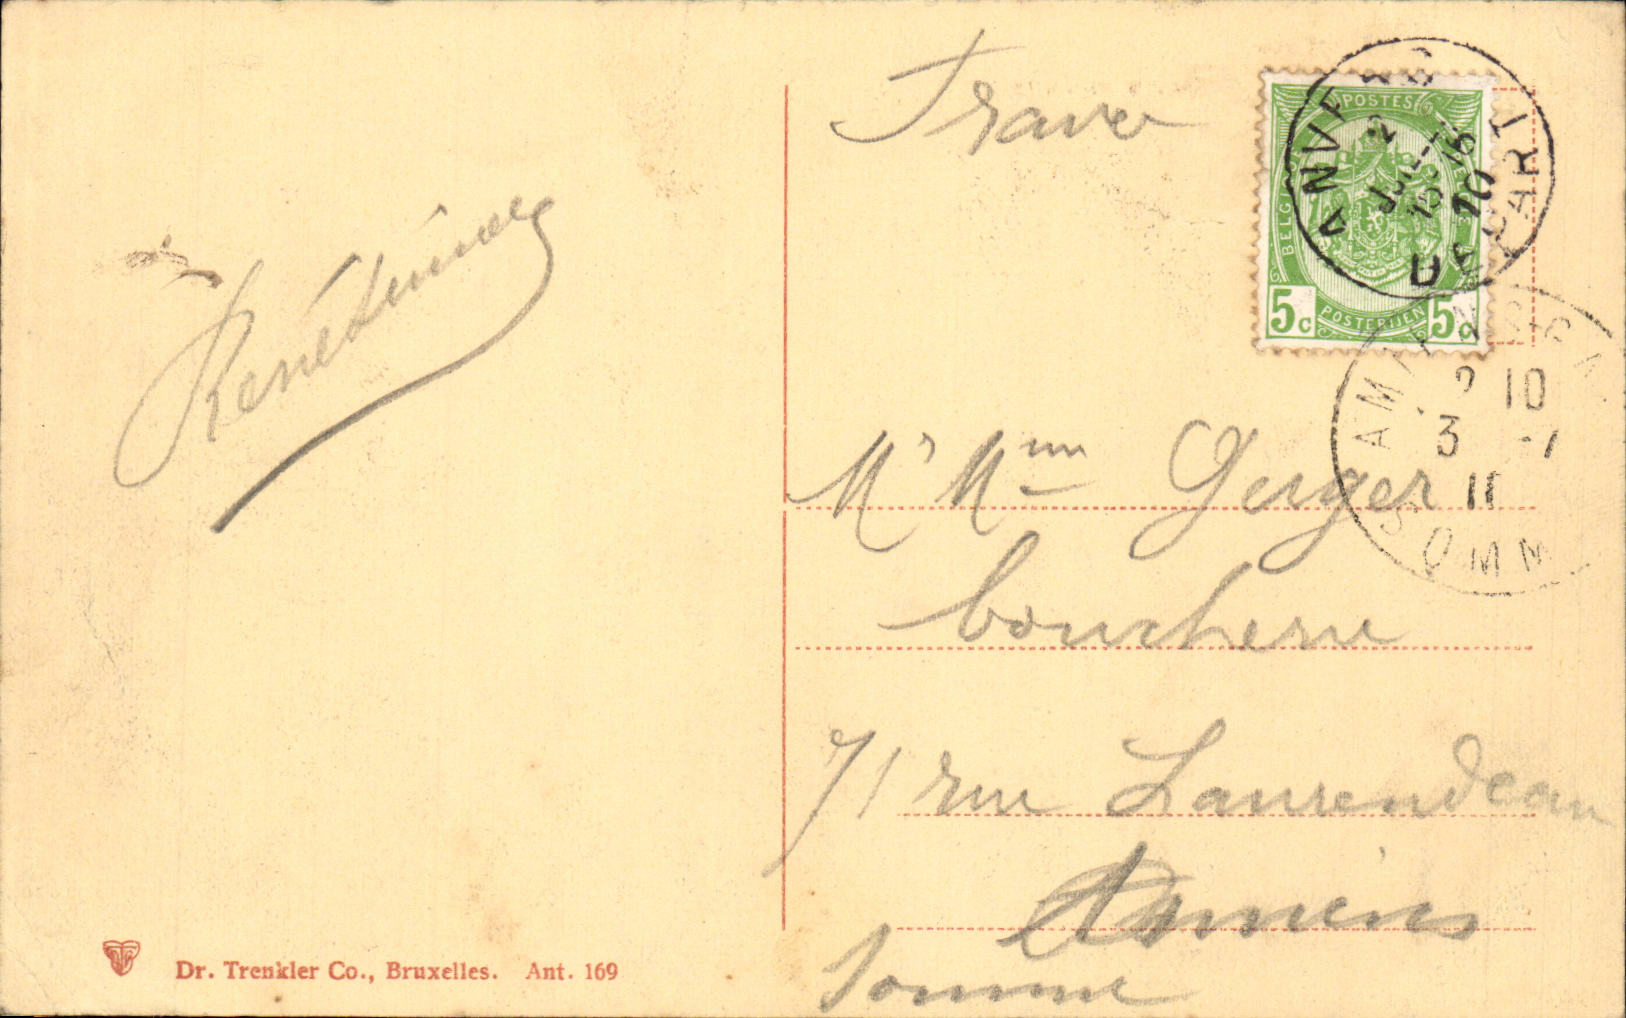 France
René
POSTES
BELGIQUE
5c POSTERIJEN 5c
ANVERS
2
JUIL
10
DEPART
AMIENS
10
3 -7
11
SOMME
Mr Mme Gerger
boucherie
71 rue Laurendeau
Amiens
Somme
Dr. Trenkler Co., Bruxelles. Ant. 169